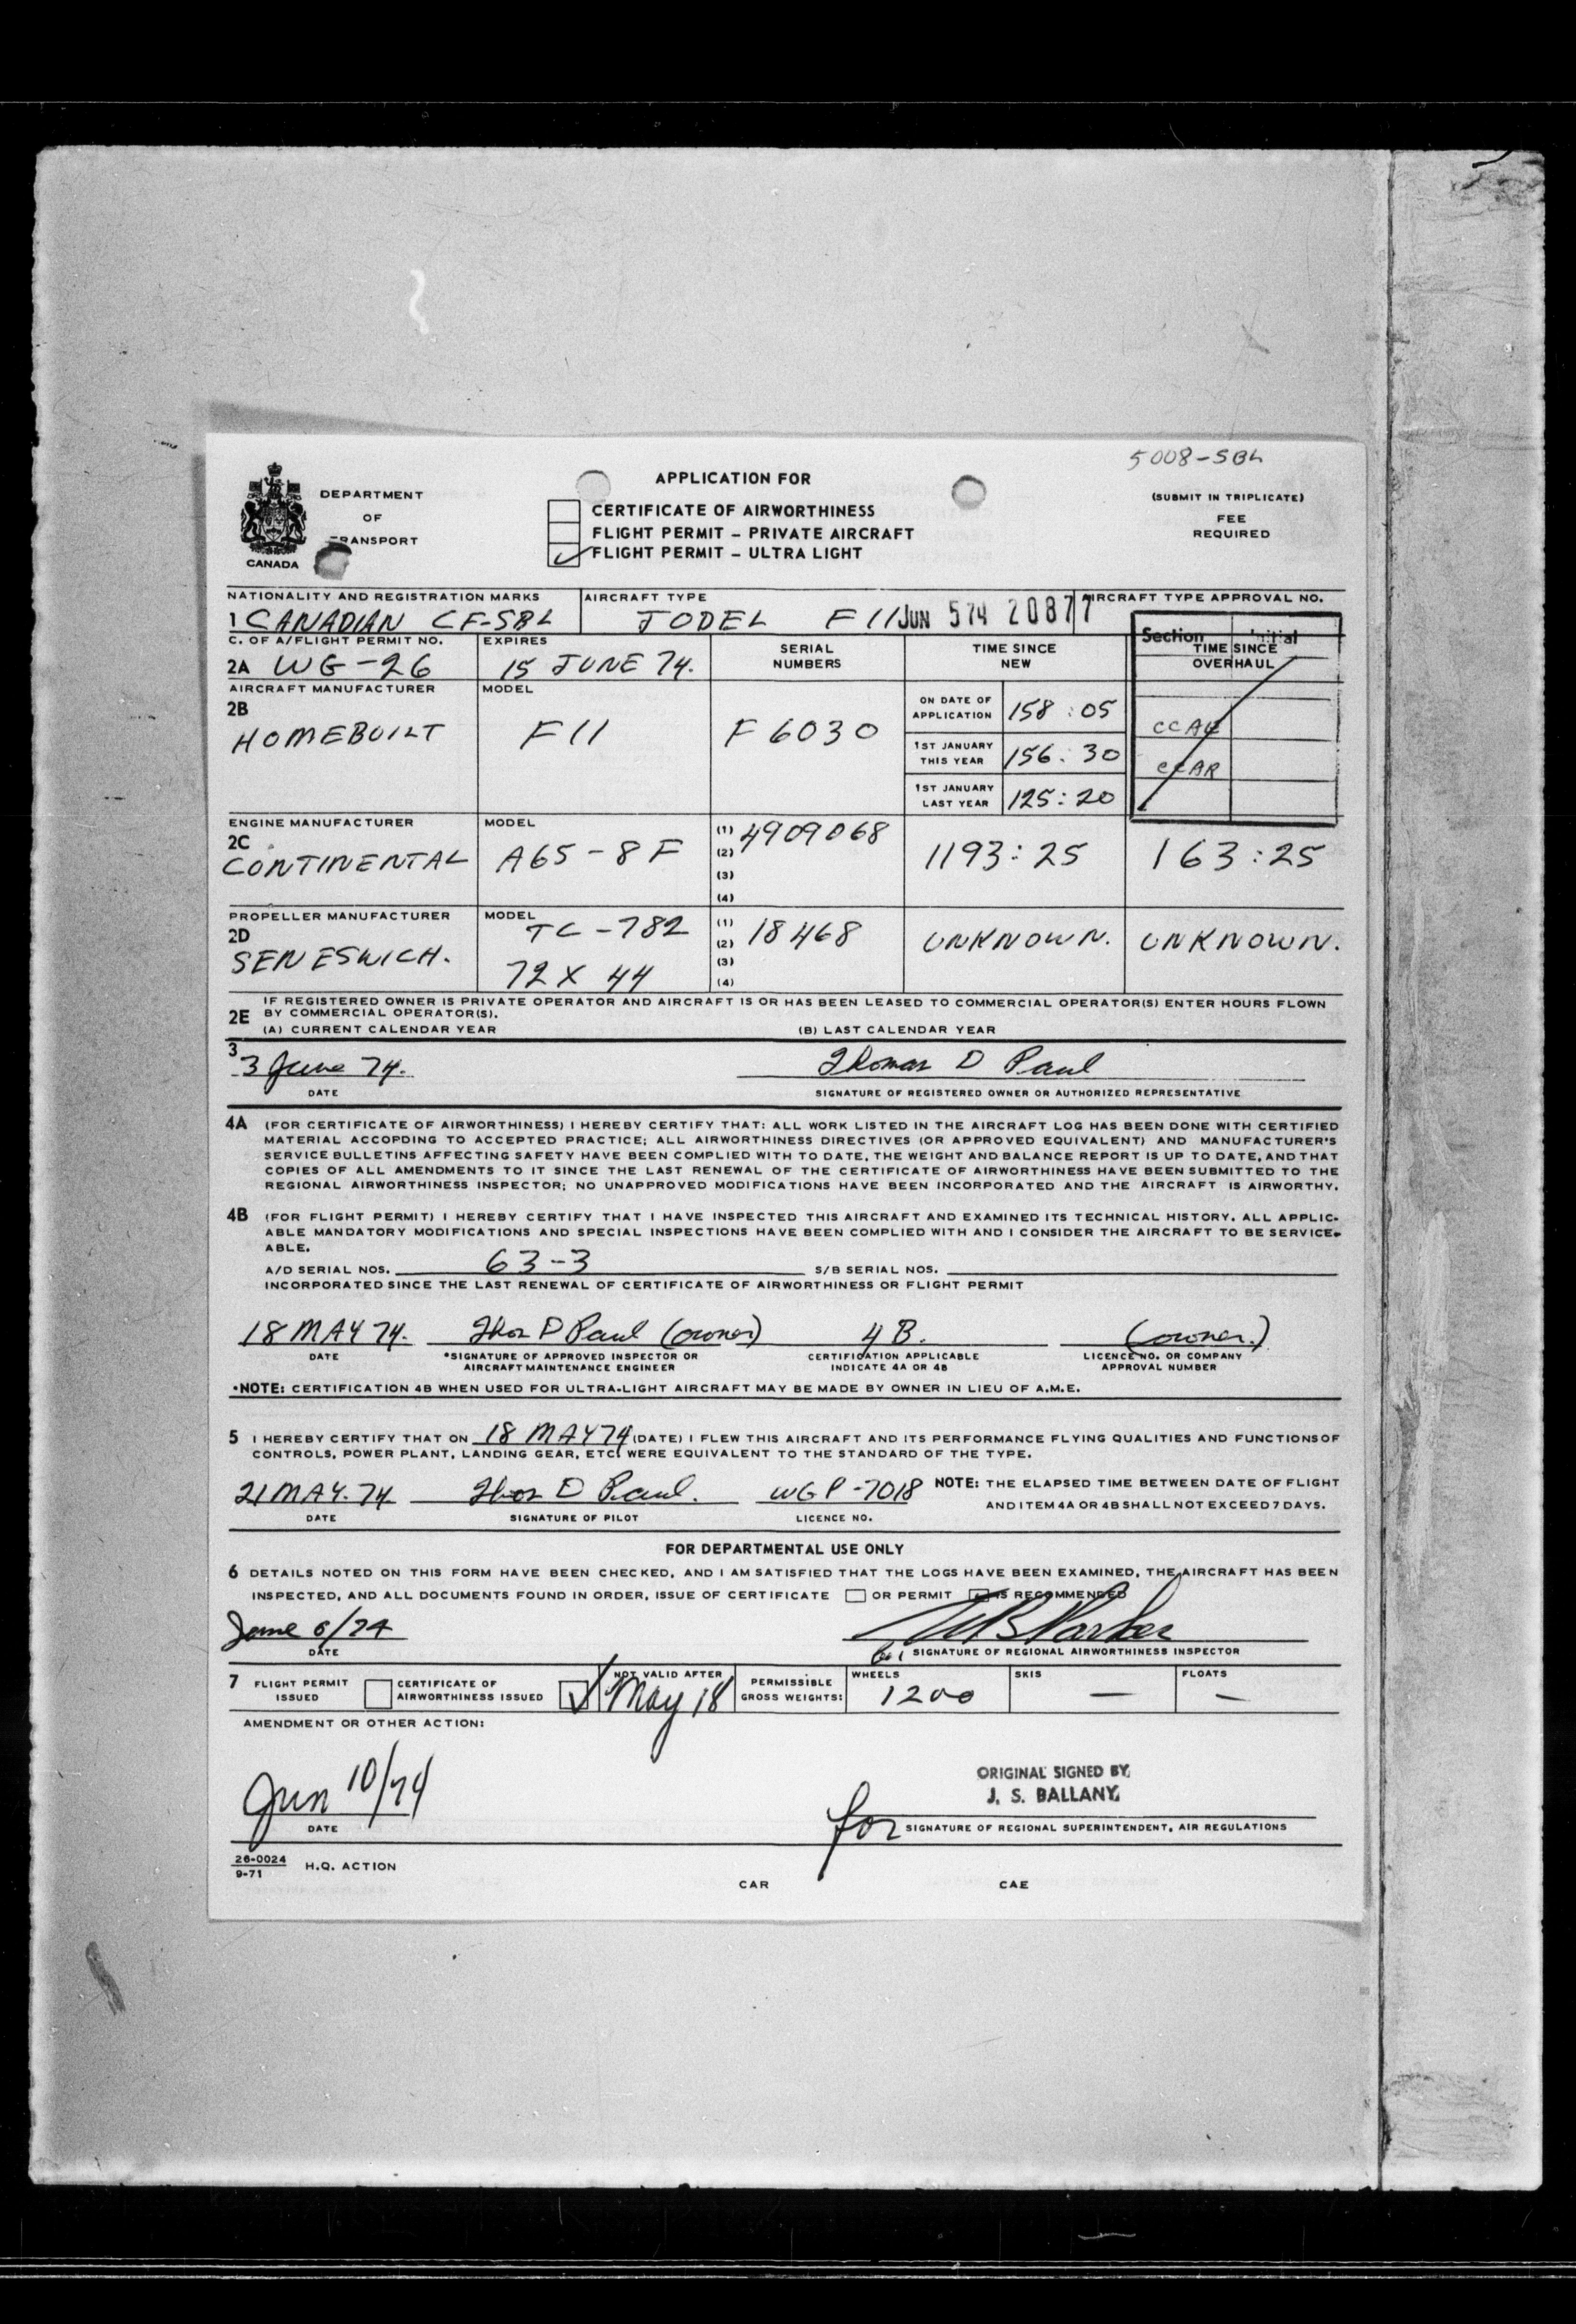 5008-SBL
DEPARTMENT
OF
TRANSPORT
CANADA
APPLICATION FOR
CERTIFICATE OF AIRWORTHINESS
FLIGHT PERMIT – PRIVATE AIRCRAFT
FLIGHT PERMIT – ULTRA LIGHT
(SUBMIT IN TRIPLICATE)
FEE
REQUIRED
NATIONALITY AND REGISTRATION MARKS
1 CANADIAN CF-SBL
AIRCRAFT TYPE
JODEL F 11
JUN 5 74 2087 7
AIRCRAFT TYPE APPROVAL NO.
C. OF A/FLIGHT PERMIT NO.
2A WG-26
EXPIRES
15 JUNE 74.
SERIAL
NUMBERS
TIME SINCE
NEW
Section Initial
TIME SINCE
OVERHAUL
AIRCRAFT MANUFACTURER
2B
HOMEBUILT
MODEL
F11
F 6030
ON DATE OF
APPLICATION
158:05
1ST JANUARY
THIS YEAR
156:30
1ST JANUARY
LAST YEAR
125:20
CCAE
CCAR
ENGINE MANUFACTURER
2C
CONTINENTAL
MODEL
A65-8F
(1) 4909068
(2)
(3)
(4)
1193:25
163:25
PROPELLER MANUFACTURER
2D
SENESWICH.
MODEL
TC-782
72 X 44
(1)
(2) 18468
(3)
(4)
UNKNOWN.
UNKNOWN.
2E IF REGISTERED OWNER IS PRIVATE OPERATOR AND AIRCRAFT IS OR HAS BEEN LEASED TO COMMERCIAL OPERATOR(S) ENTER HOURS FLOWN
BY COMMERCIAL OPERATOR(S).
(A) CURRENT CALENDAR YEAR (B) LAST CALENDAR YEAR
3
3 June 74. Thomas D Paul
DATE SIGNATURE OF REGISTERED OWNER OR AUTHORIZED REPRESENTATIVE
4A (FOR CERTIFICATE OF AIRWORTHINESS) I HEREBY CERTIFY THAT: ALL WORK LISTED IN THE AIRCRAFT LOG HAS BEEN DONE WITH CERTIFIED
MATERIAL ACCOPDING TO ACCEPTED PRACTICE; ALL AIRWORTHINESS DIRECTIVES (OR APPROVED EQUIVALENT) AND MANUFACTURER'S
SERVICE BULLETINS AFFECTING SAFETY HAVE BEEN COMPLIED WITH TO DATE, THE WEIGHT AND BALANCE REPORT IS UP TO DATE, AND THAT
COPIES OF ALL AMENDMENTS TO IT SINCE THE LAST RENEWAL OF THE CERTIFICATE OF AIRWORTHINESS HAVE BEEN SUBMITTED TO THE
REGIONAL AIRWORTHINESS INSPECTOR; NO UNAPPROVED MODIFICATIONS HAVE BEEN INCORPORATED AND THE AIRCRAFT IS AIRWORTHY.
4B (FOR FLIGHT PERMIT) I HEREBY CERTIFY THAT I HAVE INSPECTED THIS AIRCRAFT AND EXAMINED ITS TECHNICAL HISTORY. ALL APPLIC-
ABLE MANDATORY MODIFICATIONS AND SPECIAL INSPECTIONS HAVE BEEN COMPLIED WITH AND I CONSIDER THE AIRCRAFT TO BE SERVICE-
ABLE.
A/D SERIAL NOS. 63-3 S/B SERIAL NOS.
INCORPORATED SINCE THE LAST RENEWAL OF CERTIFICATE OF AIRWORTHINESS OR FLIGHT PERMIT
18 MAY 74. Thos D Paul (owner) 4B. (owner.)
DATE *SIGNATURE OF APPROVED INSPECTOR OR CERTIFICATION APPLICABLE LICENCE NO. OR COMPANY
AIRCRAFT MAINTENANCE ENGINEER INDICATE 4A OR 4B APPROVAL NUMBER
*NOTE: CERTIFICATION 4B WHEN USED FOR ULTRA-LIGHT AIRCRAFT MAY BE MADE BY OWNER IN LIEU OF A.M.E.
5 I HEREBY CERTIFY THAT ON 18 MAY 74 (DATE) I FLEW THIS AIRCRAFT AND ITS PERFORMANCE FLYING QUALITIES AND FUNCTIONS OF
CONTROLS, POWER PLANT, LANDING GEAR, ETC. WERE EQUIVALENT TO THE STANDARD OF THE TYPE.
21 MAY. 74. Thos D Paul. WGP-7018 NOTE: THE ELAPSED TIME BETWEEN DATE OF FLIGHT
AND ITEM 4A OR 4B SHALL NOT EXCEED 7 DAYS.
DATE SIGNATURE OF PILOT LICENCE NO.
FOR DEPARTMENTAL USE ONLY
6 DETAILS NOTED ON THIS FORM HAVE BEEN CHECKED, AND I AM SATISFIED THAT THE LOGS HAVE BEEN EXAMINED, THE AIRCRAFT HAS BEEN
INSPECTED, AND ALL DOCUMENTS FOUND IN ORDER, ISSUE OF CERTIFICATE OR PERMIT IS RECOMMENDED
June 6/74 Parker
DATE SIGNATURE OF REGIONAL AIRWORTHINESS INSPECTOR
7 FLIGHT PERMIT
ISSUED
CERTIFICATE OF
AIRWORTHINESS ISSUED
NOT VALID AFTER
May 18
PERMISSIBLE
GROSS WEIGHTS:
WHEELS
1200
SKIS
—
FLOATS
—
AMENDMENT OR OTHER ACTION:
Jun 10/74
DATE
ORIGINAL SIGNED BY
J. S. BALLANY
for
SIGNATURE OF REGIONAL SUPERINTENDENT, AIR REGULATIONS
26-0024
9-71
H.Q. ACTION
CAR CAE